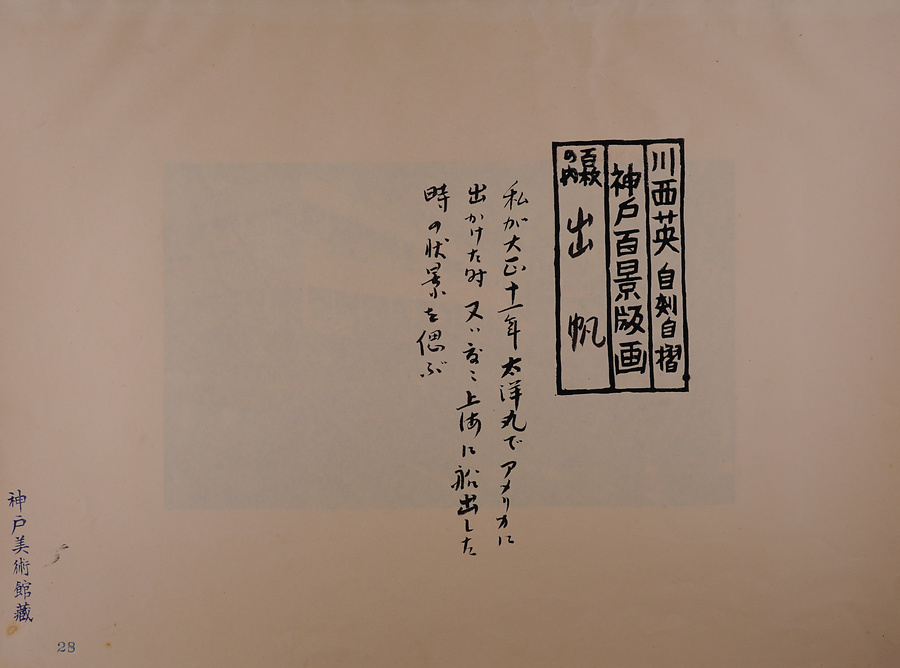 川西英 自刻自摺
神戸百景版画
百枚の内 出帆
私が大正十一年 太洋丸でアメリカに
出かけた時 又ハ度々上海に船出した
時の状景を偲ぶ
神戸美術館藏
28